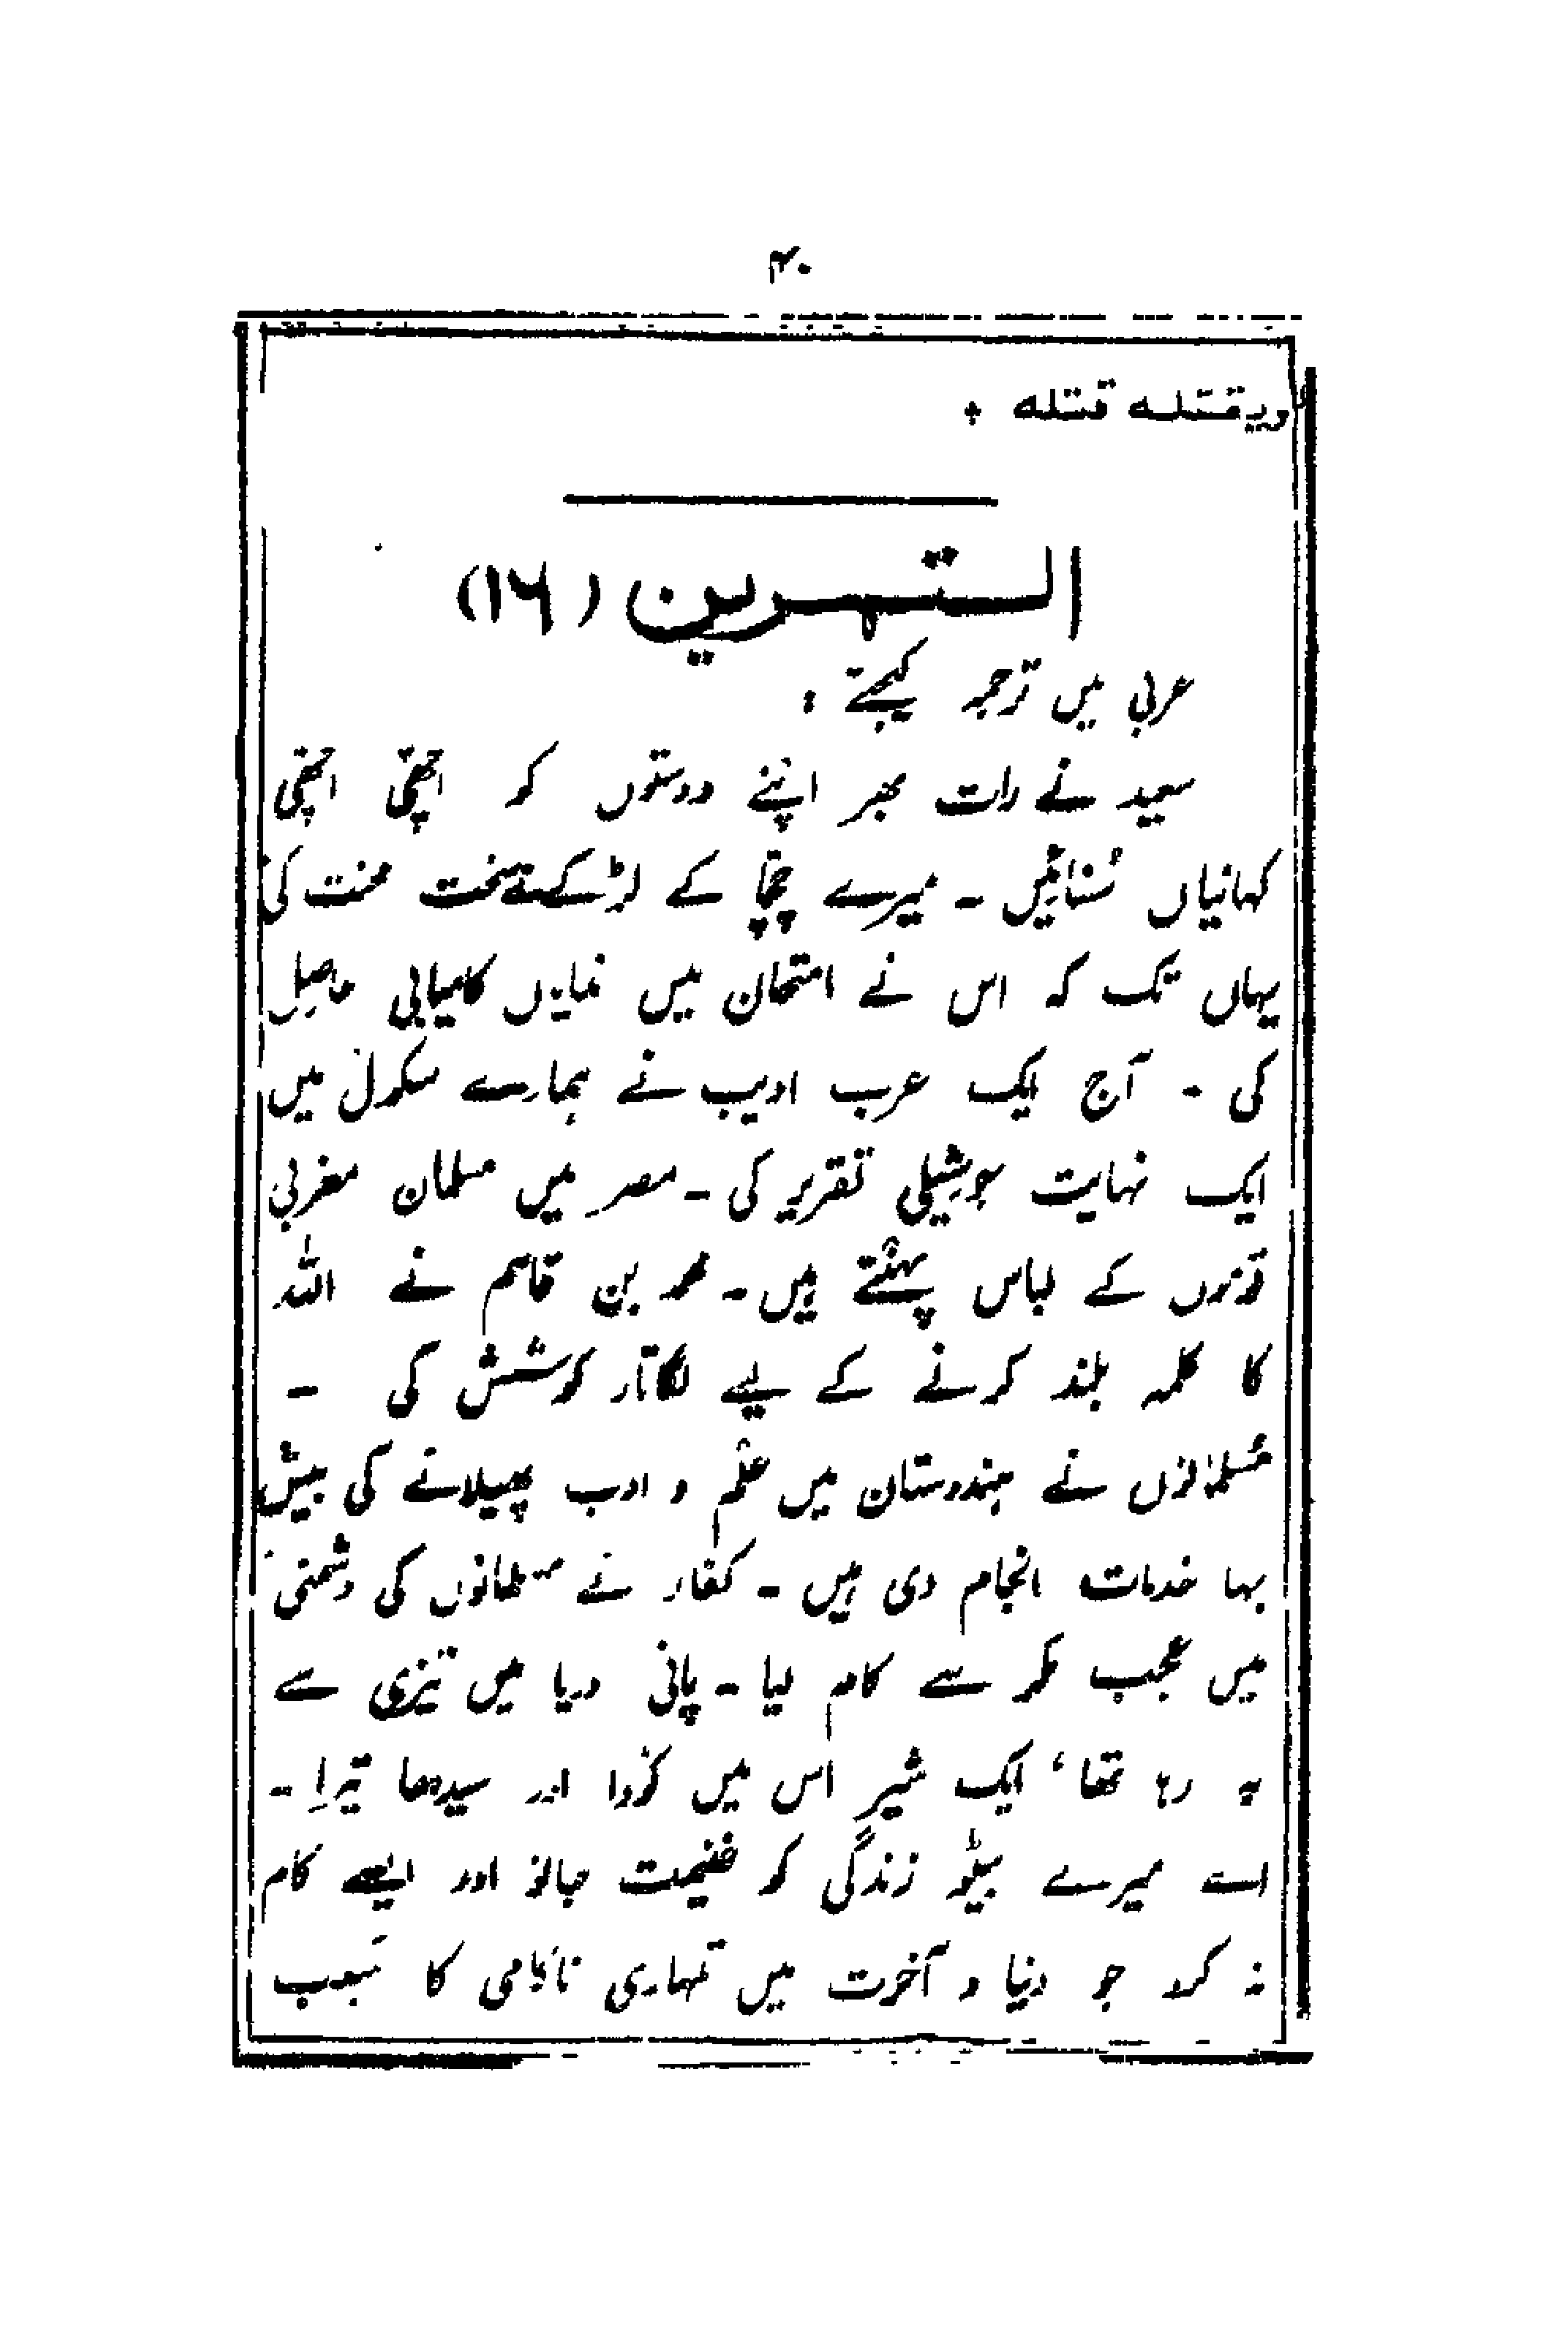 ۴۰
ویقتله قتله ۰
التمرین (۱۶)
عربی میں ترجمہ کیجئے :
سعید نے رات بھر اپنے دوستوں کو اچھّی اچھّی
کہانیاں سُنائیں ۔ میرے چچا کے لڑکے نے سخت محنت کی
یہاں تک کہ اس نے امتحان میں نمایاں کامیابی حاصِل
کی ۔ آج ایک عرب ادیب نے ہمارے سکول میں
ایک نہایت جوشِیلی تقریر کی ۔ مصر میں مسلمان مغربی
قوموں کے لباس پہنتے ہیں ۔ محمد بن قاسم نے اللہ
کا کلمہ بلند کرنے کے لیے لگاتار کوشش کی ۔
مُسلمانوں نے ہندوستان میں علم و ادب پھیلانے کی بیش
بہا خدمات انجام دی ہیں ۔ کفار نے مسلمانوں کی دشمنی
میں عجب مکر سے کام لیا ۔ پانی دریا میں تیزی سے
بہ رہا تھا، ایک شیر اس میں کودا اور سیدھا تیرا ۔
اے میرے بیٹو زندگی کو غنیمت جانو اور ایسے کام
نہ کرو جو دنیا و آخرت میں تمہاری ناکامی کا سبب